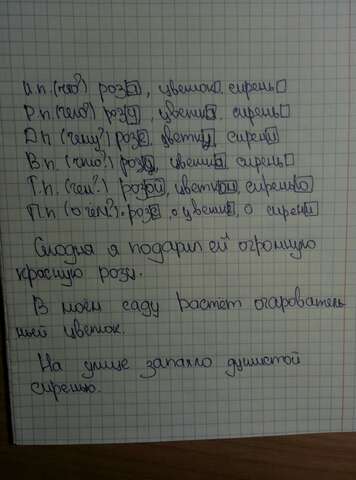 И.п. (что?) роза, цветок, сирень
Р.п. (чего?) розы, цветка, сирень
Д.п. (чему?) розе, цветку, сирени
В.п. (что?) розу, сирень
Т.п. (чем?) розой, цветком, сиренью
П.п. (о чём?) розе, о цветке, о сирени
Сегодня я подарил ей огромную
красную розу.
В моём саду растёт очарователь
ный цветок.
На улице запахло душистой
сиренью.